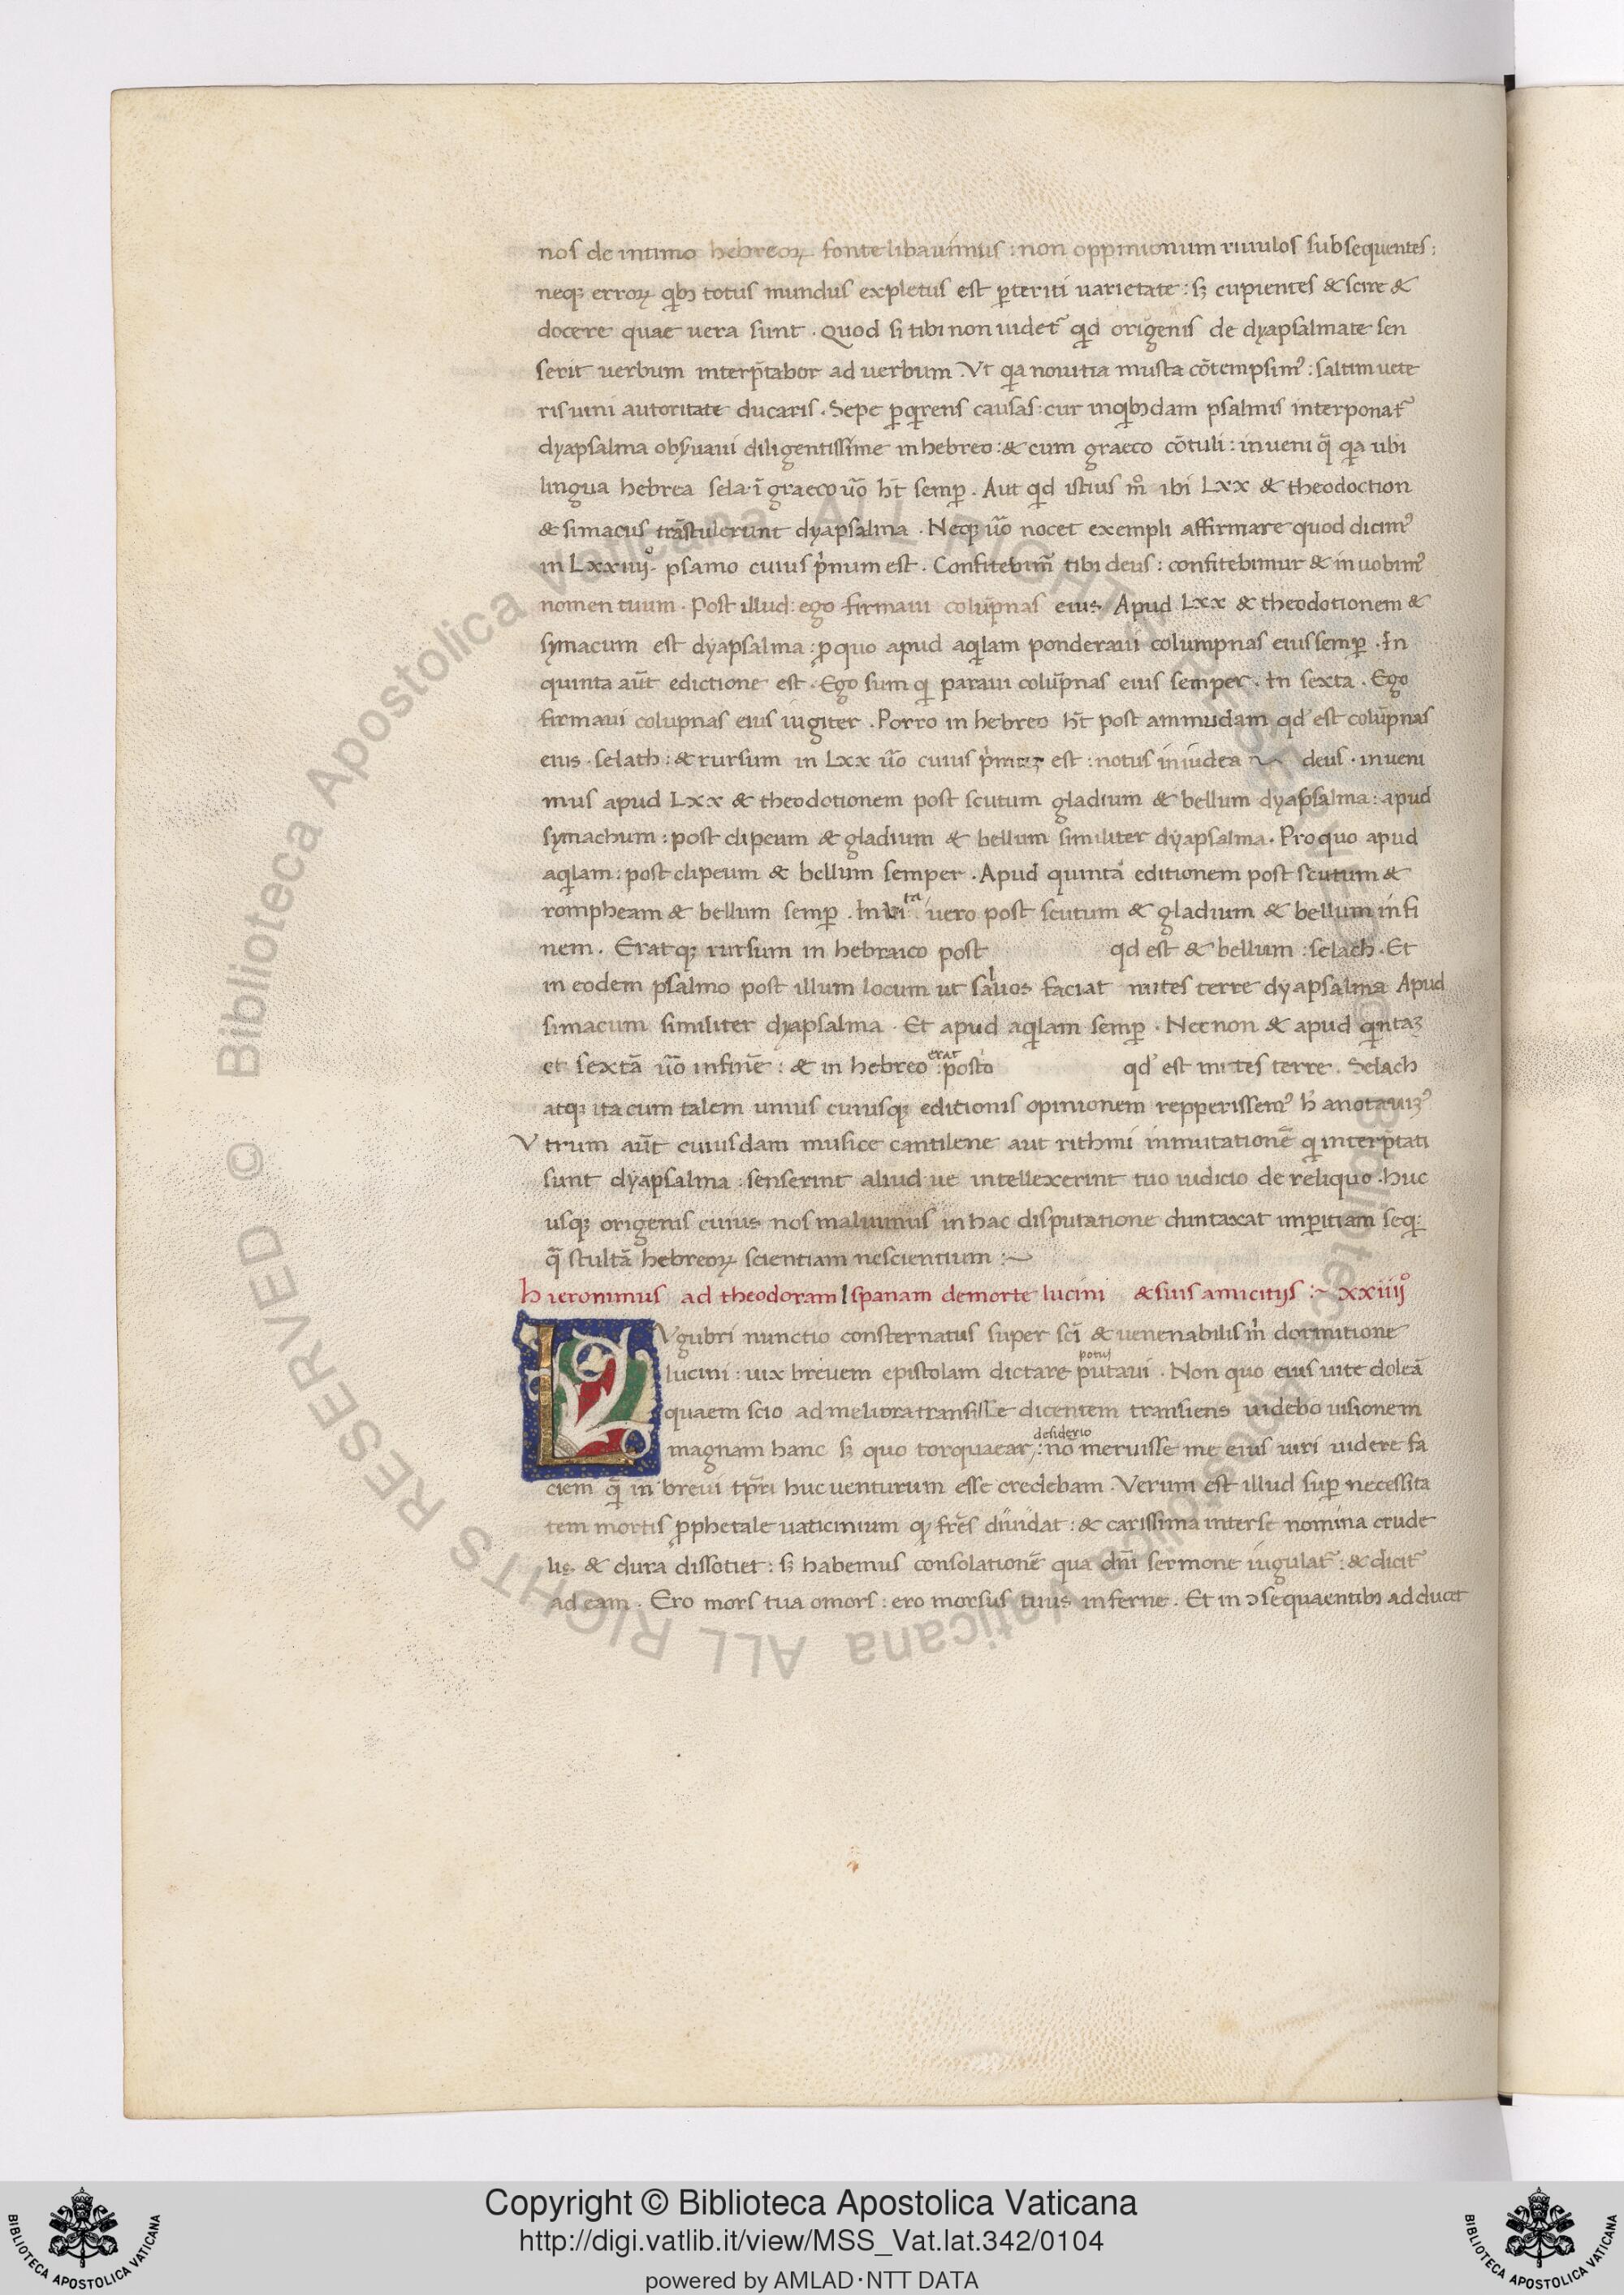 nos de intimo hebreoꝝ fonte libauimus : non oppinionum riuulos subsequentes :
neqꝫ erroꝝ qͥbꝫ totus mundus expletus est ꝑterriti uarietate : sꝫ cupientes & scire &
docere quae uera sunt . Quod si tibi non uidet᷑ qͥd origenis de dyapsalmate sen
serit uerbum interp̄tabor ad uerbum . Vt qͥa nouitia musta cōtempsimꝰ : saltim uete
ris uini autoritate ducaris . Sepe ꝑqͥrens causas : cur in qͥbꝫdam psalmis interponat᷑
dyapsalma obẜuaui diligentissime in hebreo : & cum graeco cōtuli : inueni q̄ qͥa ubi
lingua hebrea sela . ī graeco ūo ht̄ semꝑ . Aut qͥd istius mͦ ibi Lxx & theodoction
& simacus trāstulerunt dyapsalma . Neqꝫ ūo nocet exempli affirmare quod dicimꝰ
in Lxxiiiiͦ . psamo cuius pͥnum est . Confitebim᷑ tibi deus : confitebimur & inuobimꝰ
nomen tuum . Post illud : ego firmaui colūpnas eius Apud Lxx & theodotionem &
symacum est dyapsalma : ꝓ quo apud aqͥlam ponderaui columpnas eius semꝑ . In
quinta aūt edictione est . Ego sum qͥ paraui colūpnas eius semper . In sexta . Ego
firmaui colupnas eius iugiter . Porro in hebreo ht̄ post ammudam qd̓ est colūpnas
eius . selath : & rursum in Lxx ūo cuius pͥmuꝫ est : notus in iudea ~ deus . inueni
mus apud Lxx & theodotionem post scutum gladium & bellum dyapsalma : apud
symachum : post clipeum & gladium & bellum similiter dyapsalma . Pro quo apud
aqͥlam : post clipeum & bellum semper . Apud quintā editionem post scutum &
rompheam & bellum semꝑ . In vi ta uero post scutum & gladium & bellum in fi
nem . Erat qꝫ rursum in hebraico post qd est & bellum : selach . Et
in eodem psalmo post illum locum ut saluos faciat mites terre dyapsalma Apud
simacum similiter dyapsalma . Et apud aqͥlam semꝑ . Necnon & apud qͥntaꝫ
et sextā ūo in finē : & in hebreo erat : posto qd̓ est mites terre . Selach
atqꝫ ita cum talem unius cuiusqꝫ editionis opinionem repperissemꝰ h̓ anotauiꝫꝰ
Vtrum aūt cuiusdam musice cantilene aut rithmi inmutationē qͥ interp̄tati
sunt dyapsalma : senserint aliud ue intellexerint tuo iudicio de reliquo . huc
usqꝫ origenis cuius nos maluimus in hac disputatione duntaxat imꝑitiam seqͥ :
q̄ stultā hebreoꝝ scientiam nescientium : ~
hieronimus ad theodoram Ispanam de morte lucini & suis amicitijs : ~ xxiiiiͦ
LVgubri nunctio consternatus super scī & uenenabilis m̓ dormitione
lucini : uix breuem epistolam dictare potus putaui . Non quo eius uite doleā
quaem scio ad meliora transisse dicentem transiens uidebo uisionem
magnam hanc sꝫ quo torquaear desiderio : nō meruisse me eius uiri uidere fa
ciem q̄ in breui tp̄ri huc uenturum esse credebam . Verum est illud suꝑ necessita
tem mortis ꝓphetale uaticinium qꝫ fr̄es diuidat : & carissima inter se nomina crude
lis . & dura dissotiet : sꝫ habemus consolationē qua dn̄i sermone iugulat᷑ : & dicit᷑
ad eam . Ero mors tua o mors : ero morsus tuus inferne . Et in ↄsequaentibꝫ adducit
Copyright © Biblioteca Apostolica Vaticana
http://digi.vatlib.it/view/MSS_Vat.lat.342/0104
powered by AMLAD·NTT DATA
BIBLIOTECA APOSTOLICA VATICANA
BIBLIOTECA APOSTOLICA VATICANA
Biblioteca Apostolica Vaticana ALL RIGHTS RESERVED ©
Biblioteca Apostolica Vaticana ALL RIGHTS RESERVED ©